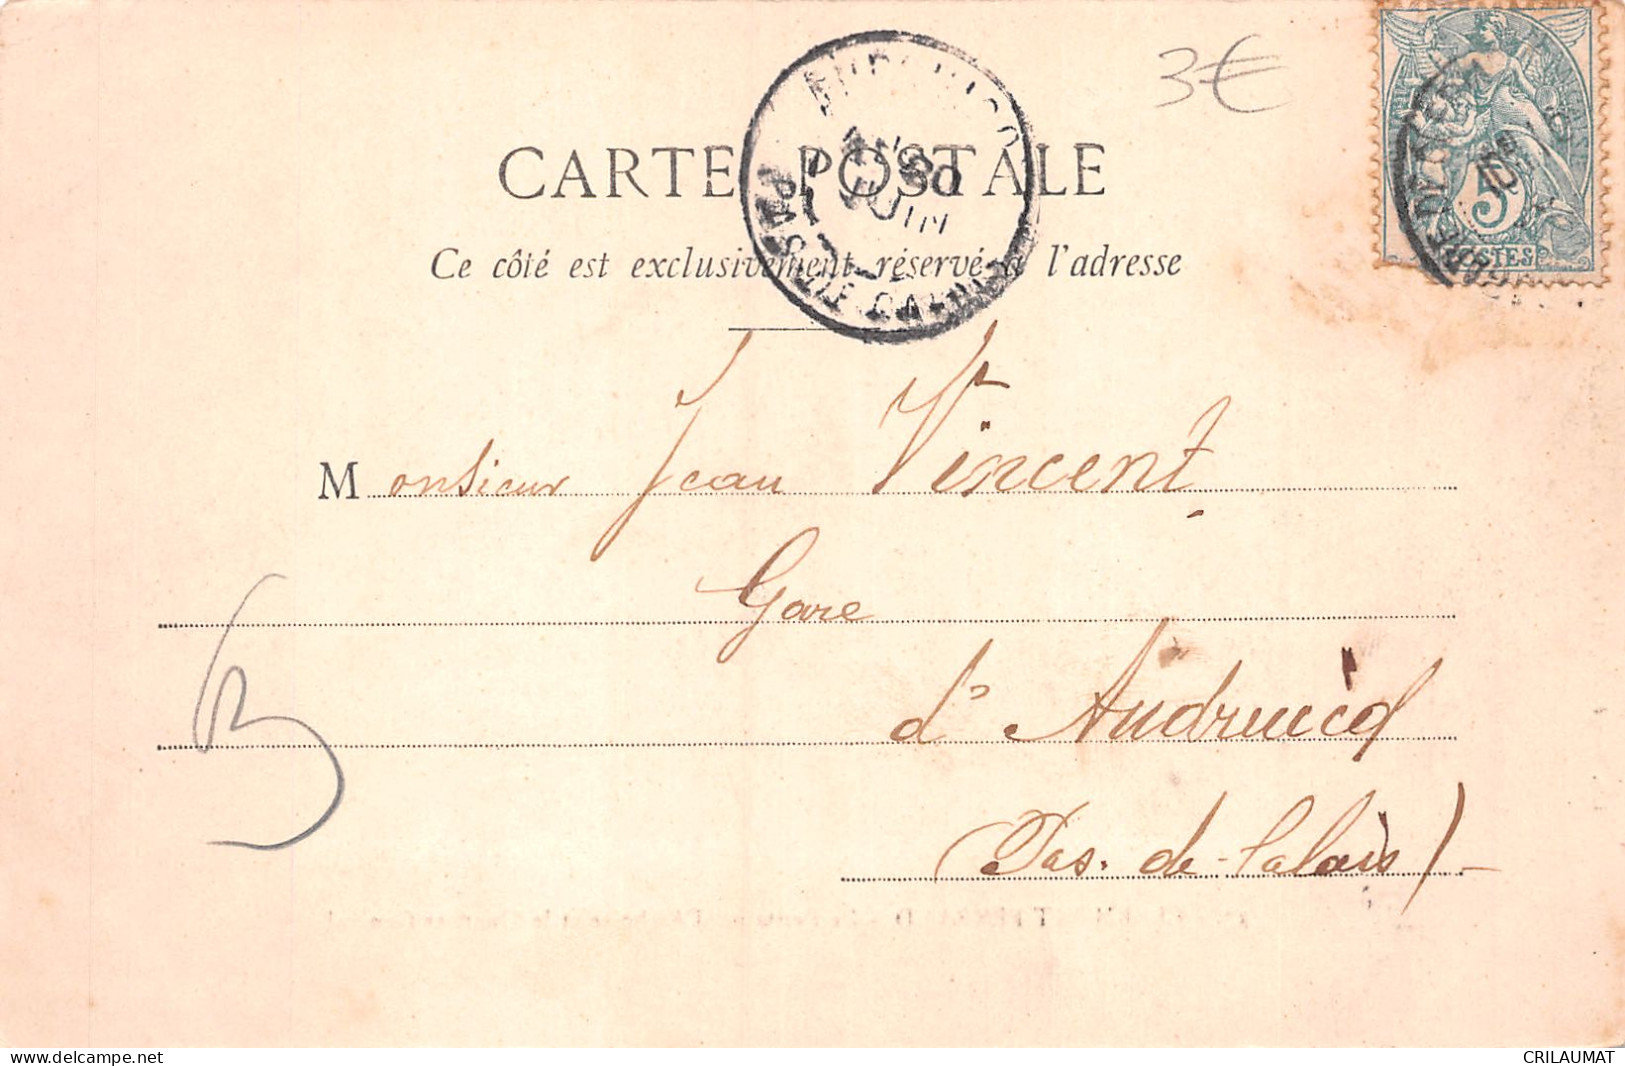 3€
CARTE POSTALE
Ce côté est exclusivement réservé à l'adresse
PAS-DE-CALAIS
5
POSTES
Monsieur Jean Vincent
Gare
d'Audruicq
(Pas-de-Calais)
www.delcampe.net
CRILAUMAT